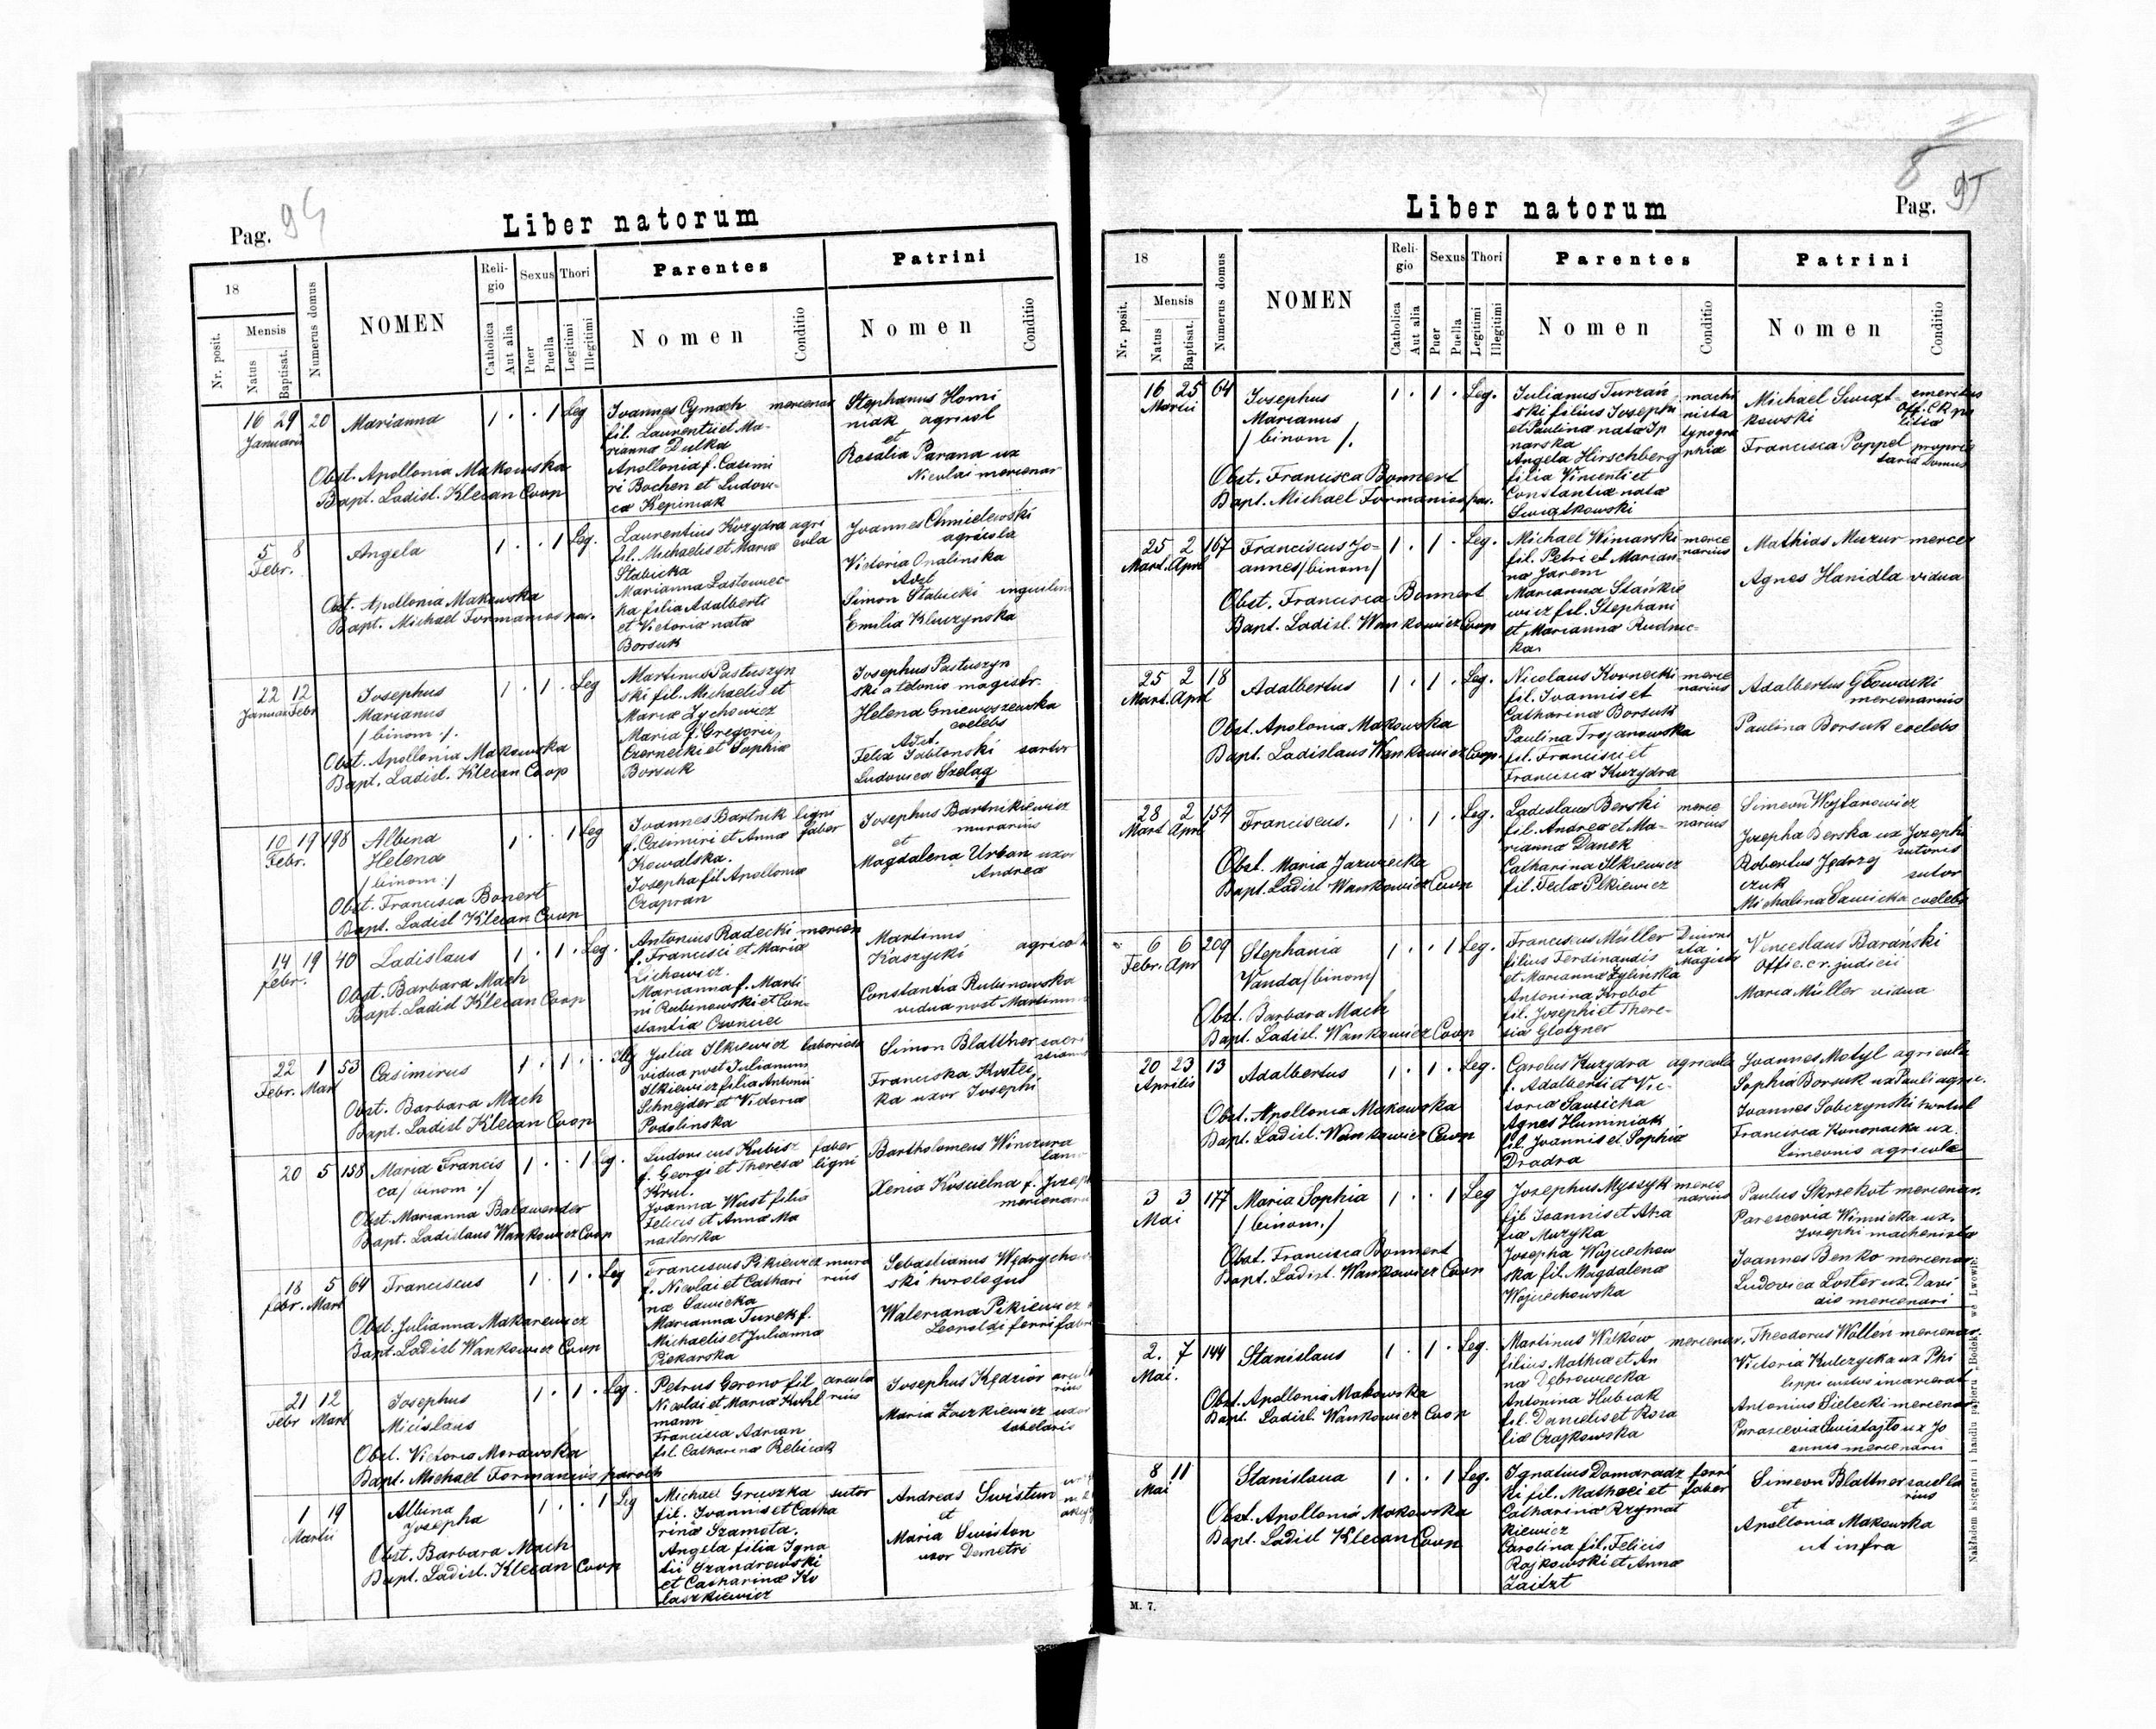 Pag. 94
Liber natorum
18
Nr. posit.
Mensis
Natus
Baptisat.
Numerus domus
NOMEN
Reli-
gio
Catholica
Aut alia
Sexus
Puer
Puella
Thori
Legitimi
Illegitimi
Parentes
Nomen
Conditio
Patrini
Nomen
Conditio
16 29 20 Marianna 1 . . 1 Leg
Januarii
Joannes Cymach
fil. Laurentii et Ma-
rianna Dulka
Apollonia f. Casimi
ri Bochen et Ludovi-
ca Kepiniak
Stephanus Homi
niak agricol
et
Rosalia Parana ux
Nicolai mercenar
Obst. Apollonia Makowska
Bapt. Ladisl. Klecan Coop
5 8 Angela 1 . . 1 Leg.
Febr.
Laurentius Kuzydra agri
fil. Michaelis et Maria cola
Stabicka
Marianna Lastowiec-
ka filia Adalberti
et Victoria nata
Borsuk
Joannes Chmielewski
agricola
Victoria Opalinska
Adst
Simon Stabicki
Emilia Kluczynska
Obst. Apollonia Makowska
Bapt. Michael Formanios par.
22 12 Josephus 1 . 1 . Leg
Januar Febr
Marianus
/binom:/.
Martinus Pastuszyn
ski fil. Michaelis et
Maria Zychowicz
Maria f. Gregorii
Czernecki et Sophia
Borsuk
Josephus Pastuszyn
ski a telonio magistr.
Helena Gniewoszewska
coelebs
Adst.
Felix Jablonski sartor
Ludovica Szelag
Obst. Apollonia Makowska
Bapt. Ladisl. Klecan Coop
10 19 198 Albina 1 . . 1 Leg
Febr.
Helena
/binom:/
Joannes Bartnik ligni
f. Casimiri et Anna faber
Kowalska.
Josepha fil Apollonia
Czapran
Josephus Bartnikiewicz
murarius
et
Magdalena Urban uxor
Andrea
Obst. Francisca Bonert
Bapt. Ladisl Klecan Coop
14 19 40 Ladislaus 1 . 1 . Leg.
febr.
Antonius Radecki mercen
f. Francisci et Maria
Lichowicz.
Marianna f. Marti
ni Rubinowski et Con-
stantia
Martinus
Kaszycki
Constantia Rubinowska
vidua post Martinum
Obst. Barbara Mach
Bapt. Ladisl Klecan Coop
22 1 53 Casimirus 1 . 1 .
Febr. Mart
Julia Ilkiewicz
vidua post Julianum
Ilkiewicz filia Antonii
Schnejder et Victoria
Podolinska
Simon Blattner
Franciska
ka uxor Josephi
Obst. Barbara Mach
Bapt. Ladisl Klecan Coop
20 5 158 Maria Francis 1 . . 1 Leg.
ca/binom:/
Ludovicus Kubisz faber
f. Georgi et Theresa ligni
Krul.
Joanna Wust filia
Felicis et Anna Ma
nasterska
Bartholomeus Winczura
Xenia Koscielna f. Joseph
Obst. Marianna Balawender
Bapt. Ladislaus Wankowicz Coop
18 5 64 Franciscus 1 . 1 . Leg
febr. Mart
Franciscus Pikiewicz mura
f. Nicolai et Cathari rius
na Sawicka
Marianna Turek f.
Michaelis et Julianna
Piekarska
Sebastianus
ski horologus
Waleriana Pikiewicz
Leopoldi ferri fabr
Obst. Julianna Makarewicz
Bapt. Ladisl Wankowicz Coop
21 12 Josephus 1 . 1 . Leg.
Febr Mart
Miecislaus
Petrus Gerono fil
Nicolai et Maria Kuhl
mann
Francisca Adrian
fil. Catharina Rebizak
Josephus Kędzior
Maria uxor
Obst. Victoria Morawska
Bapt. Michael Formanios paroch
1 19 Albina 1 . . 1 Leg
Martii
Josepha
Michael Gruszka sutor
fil. Joannis et Catha
rina Szamota.
Angela filia Igna
tii Szandrowski
et Catharina Ko
laszkiewicz
Andreas Swistun
et
Maria Swiston
uxor Demetri
Obst. Barbara Mach
Bapt. Ladisl. Klecan Coop
8
Pag. 95
Liber natorum
18
Nr. posit.
Mensis
Natus
Baptisat.
Numerus domus
NOMEN
Reli-
gio
Catholica
Aut alia
Sexus
Puer
Puella
Thori
Legitimi
Illegitimi
Parentes
Nomen
Conditio
Patrini
Nomen
Conditio
16 25 64 Josephus 1 . 1 . Leg.
Martii
Marianus
/binom/.
Julianus Turzań machi
ski filius Josephi nista
et Paulina nata typogra
narska phia
Angela Hirschberg
filia Vincenti et
Constantia nata
Swiątkowski
Michael Swiąt- emeritus
kowski
Francisca Poppel proprie
taria Domus
Obst. Francisca Bonnert
Bapt. Michael Formanios par.
25 2 167 Franciscus Jo- 1 . 1 . Leg.
Mart. Apri
annes/binom/
Michael Winiarski merce
fil. Petri et Marian- narius
na Jarem
Marianna Stańkie
wicz fil. Stephani
et Marianna Rudnic-
ka
Mathias Mazur mercen
Agnes Hanidla vidua
Obst. Francisca Bonnert
Bapt. Ladisl. Wankowicz Coop
25 2 18 Adalbertus 1 . 1 . Leg.
Mart. Apri
Nicolaus Kornecki merce
fil. Joannis et narius
Catharina Borsuk
Paulina Trojanowska
fil. Francisci et
Francisca Kuzydra
Adalbertus Głowacki
mercenarius
Paulina Borsuk coelebs
Obst. Apolonia Makowska
Bapt. Ladislaus Wankowicz Coop.
28 2 154 Franciscus. 1 . 1 . Leg.
Mart Apri
Ladislaus Berski merce
fil. Andrea et Ma- narius
rianna Danek
Catharina Ilkiewicz
fil. Tecla Ilkiewicz
Simeon Wojtanowicz
Josepha Berska ux Josephi
sutoris
Robertus Jędrzej
czuk sutor
Michalina Sawicka coelebs
Obst. Maria Jazwiecka
Bapt. Ladisl Wankowicz Coop
6 6 209 Stephania 1 . . 1 Leg.
Febr. Apr
Vanda/binom/
Franciscus Müller
filius Ferdinandis
et Marianna Zylinska
Antonina Krobot
fil. Josephi et There-
sia Glotzner
Venceslaus Barański
Offic. cr. judicii
Maria Müller vidua
Obst. Barbara Mach
Bapt. Ladisl. Wankowicz Coop
20 23 13 Adalbertus 1 . 1 . Leg.
Aprilis
Carolus Kuzydra agricola
f. Adalberti et Vic-
toria Sawicka
Agnes Huminiak
fil. Joannis et Sophia
Dradra
Joannes Motyl agricola
Sophia Borsuk ux Pauli agric.
Joannes Sobczynski
Francisca Konopacka ux.
Simeonis agricola
Obst. Apollonia Makowska
Bapt. Ladisl. Wankowicz Coop
3 3 177 Maria Sophia 1 . . 1 Leg
Mai
/binom./
Josephus Myszyk merce
fil Joannis et Aga narius
fia Muzyka
Josepha Wojciechow
ska fil. Magdalena
Wojciechowska
Paulus Skrzekot mercenar.
Parascevia Winnicka ux.
Josephi machenista
Joannes Benko mercenar
Ludovica Loster ux. Davi
dis mercenari
Obst. Francisca Bonnert
Bapt. Ladisl. Wankowicz Coop
2. 7 144 Stanislaus 1 . 1 . Leg.
Mai.
Martinus Walków mercenar.
filius Mathia et An
na Dębrowiecka
Antonina Hubiak
fil. Danielis et Rosa
lia Czajkowska
Theodorus Wollen mercenar.
Victoria Kulczycka ux Phi
lippi custos incarcerat
Antonius Sielecki mercenar
Parascevia Swistajło ux Jo
annis mercenarii
Obst. Apollonia Makowska
Bapt. Ladisl. Wankowicz Coop
8 11 Stanislaua 1 . . 1 Leg.
Mai
Ignatius Domaradz ferri
ki fil. Mathaei et faber
Catharina Rzymat
kiewicz
Carolina fil. Felicis
Rajkowski et Anna
Zaitzt
Simeon Blattner
et
Apollonia Makowska
ut infra
Obst. Apollonia Makowska
Bapt. Ladisl Klecan Coop
M. 7.
Nakładem księgarni i handlu papieru Bodeka we Lwowie.